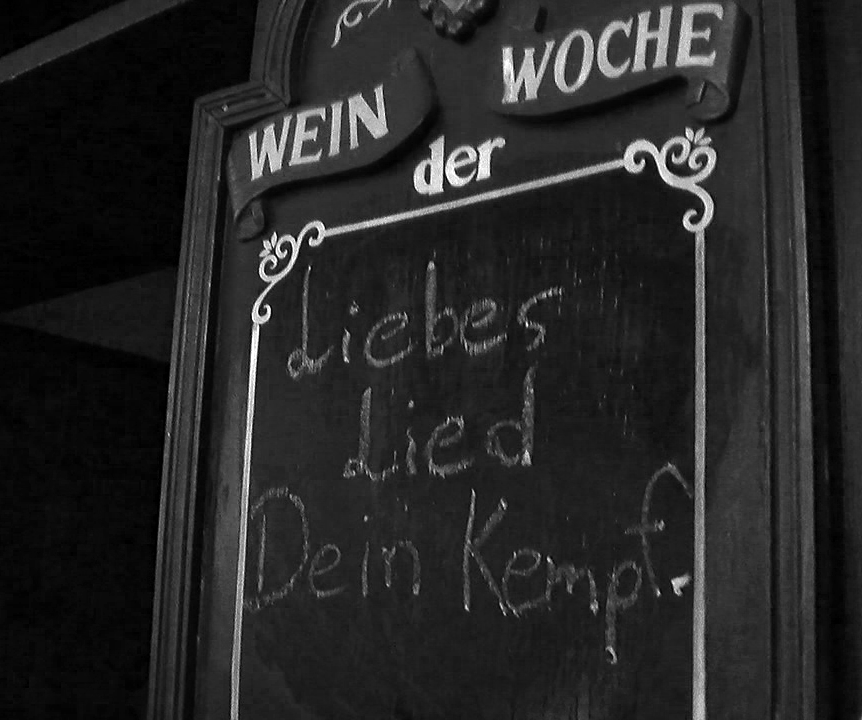 WEIN
der
WOCHE
Liebes
Lied
Dein Kempf.